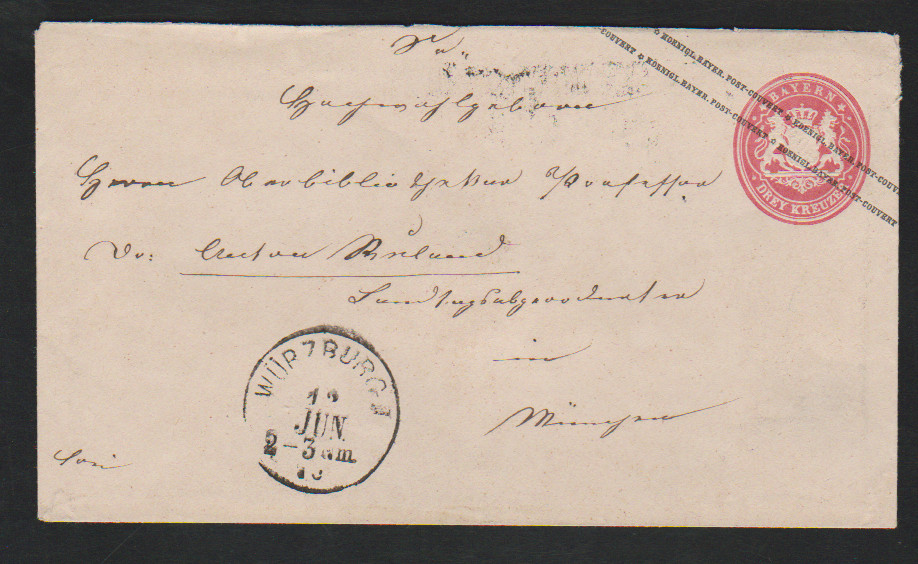 KOENIGL. BAYER. POST-COUVERT KOENIGL. BAYER. POST-COUVERT
COUVERT KOENIGL. BAYER. POST-COUVERT KOENIGL. BAYER. POST-COUVERT
BAYERN
DREY KREUZER
Hochwohlgeboren
Herrn Oberbibliothekar Professor
Dr: Anton Ruland
Landtagsabgeordneter
in
München
WÜRZBURG
JUN
2-3